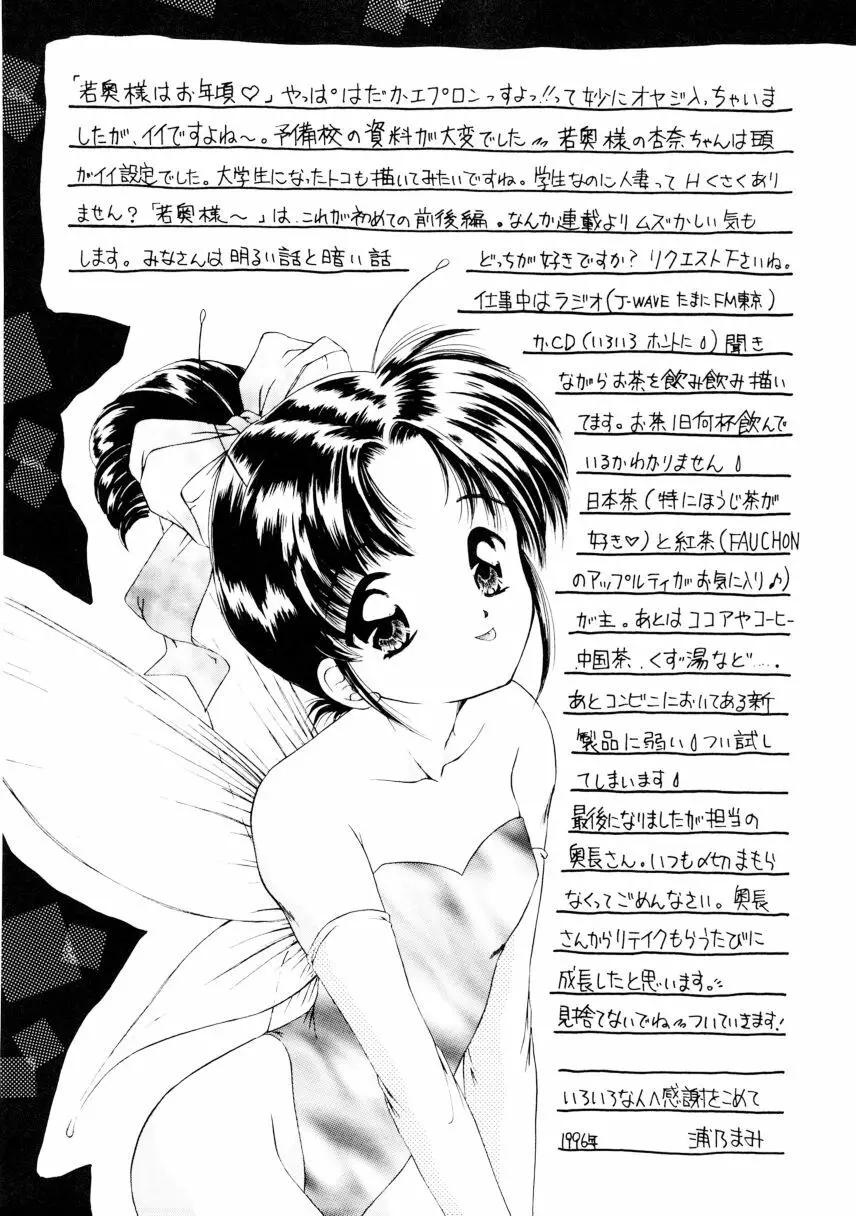 「若奥様はお年頃♡」やっぱはだかエプロンっすよっ!!って妙にオヤジ入っちゃいま
したが、イイですよね〜。予備校の資料が大変でした〜 若奥様の杏奈ちゃんは頭
がイイ設定でした。大学生になったトコも描いてみたいですね。学生なのに人妻ってHくさくあり
ません?「若奥様〜」は、これが初めての前後編。なんか連載よりムズかしい気も
します。みなさんは明るい話と暗い話
どっちが好きですか?リクエスト下さいね。
仕事中はラジオ(J-WAVE たまにFM東京)
かCD(いろいろ ホントに)聞き
ながらお茶を飲み飲み描い
てます。お茶1日何杯飲んで
いるかわかりません
日本茶(特にほうじ茶が
好き♡)と紅茶(FAUCHON
のアップルティがお気に入り♪)
が主。あとはココアやコーヒー
中国茶、くず湯など……。
あとコンビニにおいてある新
製品に弱い つい試し
てしまいます
最後になりましたが担当の
奥長さん。いつも〆切まもら
なくってごめんなさい。奥長
さんからリテイクもらうたびに
成長したと思います。
見捨てないでね〜ついていきます!
いろいろな人へ感謝をこめて
1996年 浦乃まみ